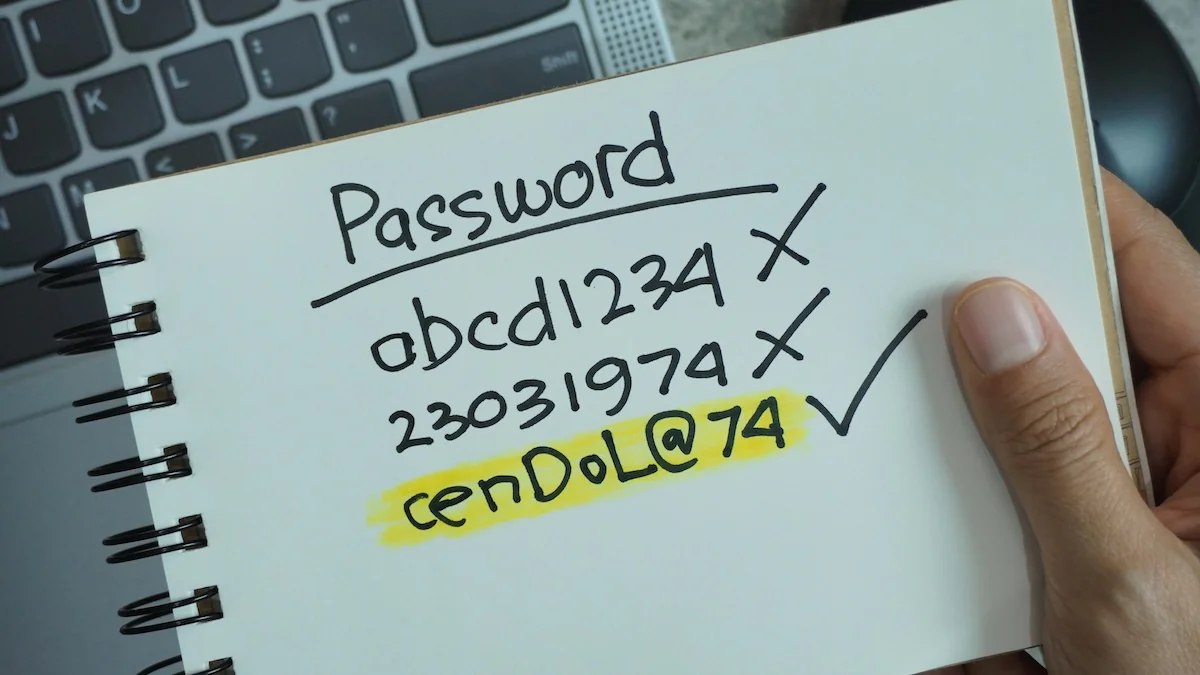 O
L
:
;
"
'
Shift
J
K
<
>
?
N
M
Password
abcd1234 X
23031974 X
cenDoL@74 ✓